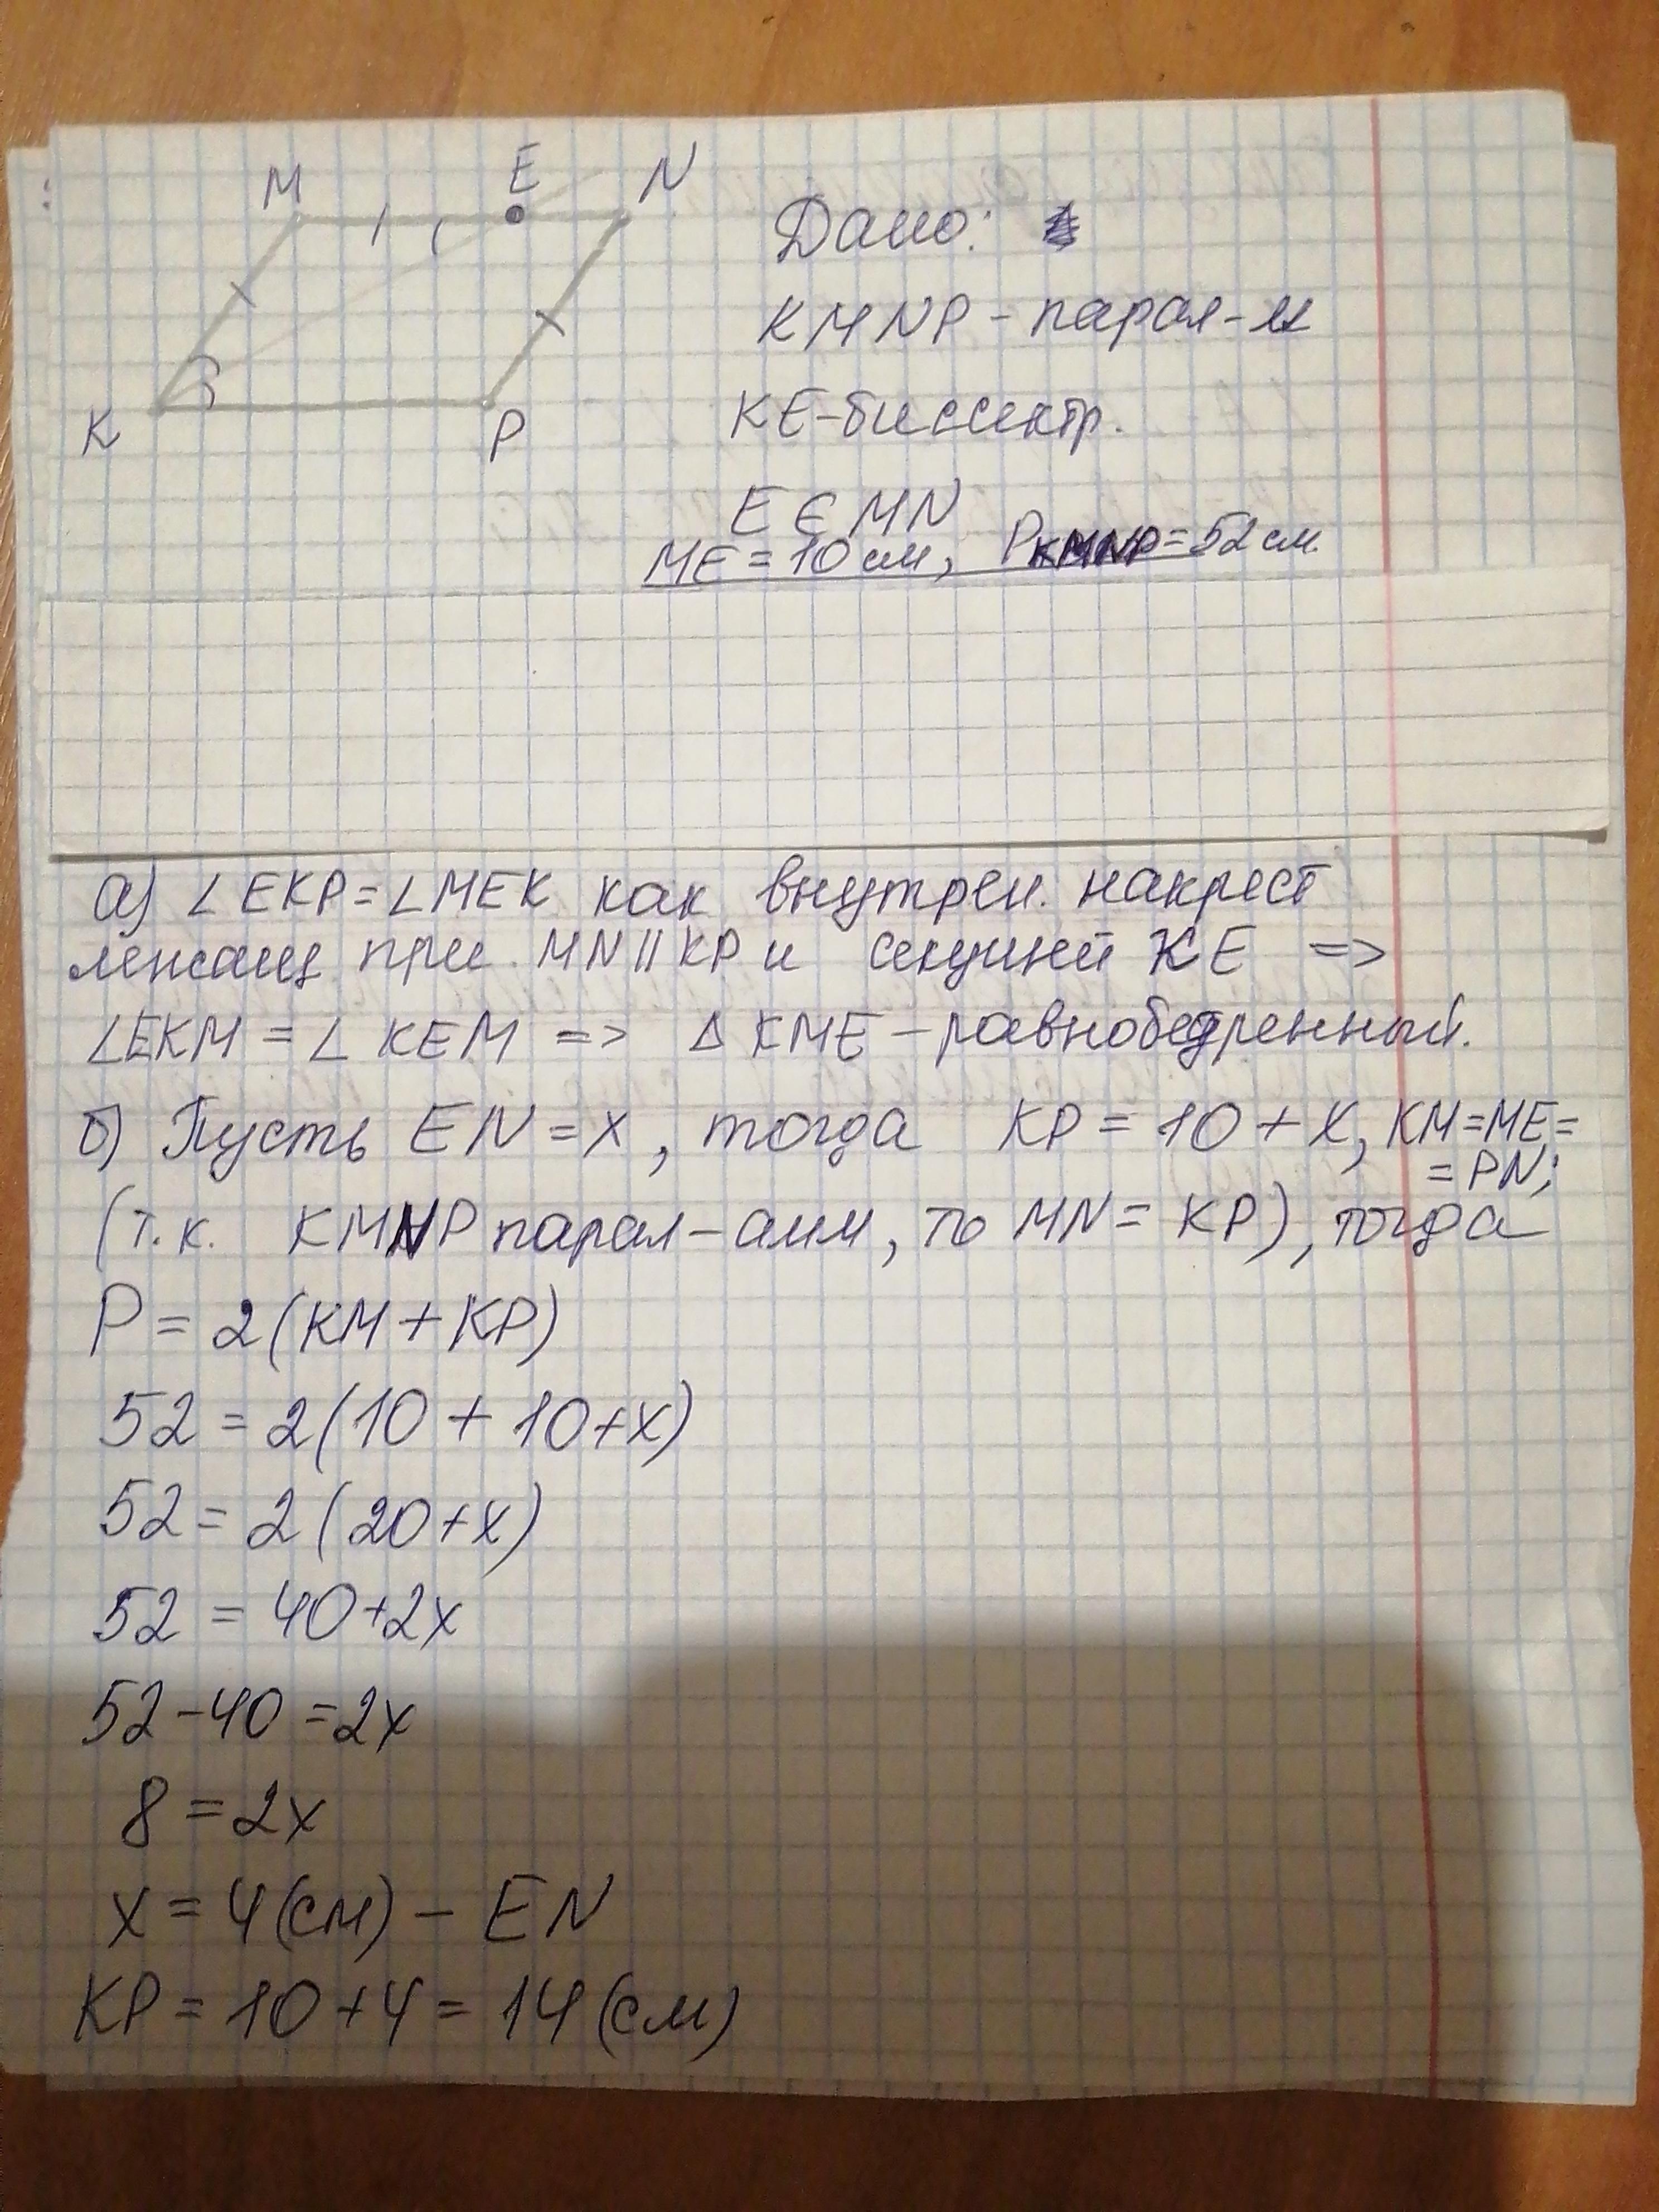 M E N
K P
Дано:
KMNP - парал-м
KE-биссектр.
E ∈ MN
ME = 10 см, PKMNP = 52 см.
а) ∠EKP = ∠MEK как внутрен. накрест
лежащ при MN || KP и секущей KE =>
∠EKM = ∠KEM => Δ KME – равнобедренный.
б) Пусть EN = x, тогда KP = 10 + x, KM = ME =
= PN;
(т.к. KMNP парал-амм, то MN = KP), тогда
P = 2(KM + KP)
52 = 2(10 + 10+x)
52 = 2(20+x)
52 = 40+2x
52-40 = 2x
8 = 2x
x = 4(см) – EN
KP = 10+4 = 14(см)